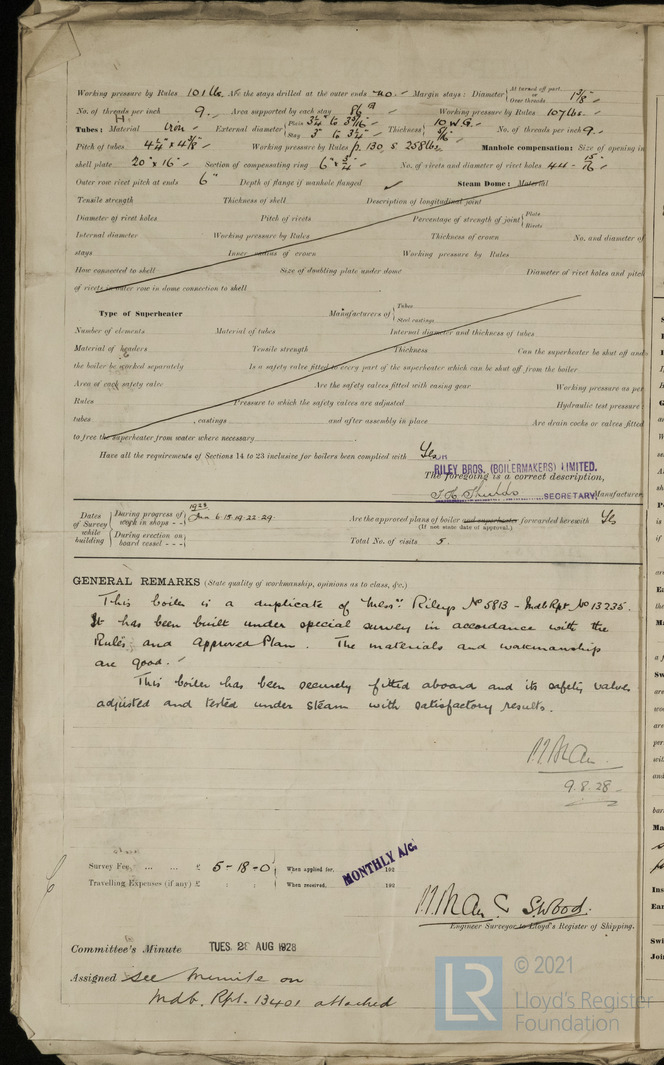 Working pressure by Rules 101 lbs. Are the stays drilled at the outer ends no. Margin stays: Diameter { At turned off part or Over threads 1 5/8"
No. of threads per inch 9. Area supported by each stay Working pressure by Rules 107 lbs.
Tubes: Material Iron External diameter { Plain 3 1/4" to 3 3/16" Stay 3" to 3 1/4" Thickness { 10 W.G. 5/16 No. of threads per inch 9.
Pitch of tubes 4 1/4" x 4 3/8" Working pressure by Rules p. 130, s 258 lbs. Manhole compensation: Size of opening in
shell plate 20" x 16" Section of compensating ring 6" x 3/4" No. of rivets and diameter of rivet holes 44 - 15/16"
Outer row rivet pitch at ends 6" Depth of flange if manhole flanged Steam Dome: Material
Tensile strength Thickness of shell Description of longitudinal joint
Diameter of rivet holes Pitch of rivets Percentage of strength of joint { Plate Rivets
Internal diameter Working pressure by Rules Thickness of crown No. and diameter of
stays Inner radius of crown Working pressure by Rules
How connected to shell Size of doubling plate under dome Diameter of rivet holes and pitch
of rivets in outer row in dome connection to shell
Type of Superheater Manufacturers of { Tubes Steel castings
Number of elements Material of tubes Internal diameter and thickness of tubes
Material of headers Tensile strength Thickness Can the superheater be shut off and
the boiler be worked separately Is a safety valve fitted to every part of the superheater which can be shut off from the boiler
Area of each safety valve Are the safety valves fitted with easing gear Working pressure as per
Rules Pressure to which the safety valves are adjusted Hydraulic test pressure:
tubes , castings and after assembly in place Are drain cocks or valves fitted
to free the superheater from water where necessary
Have all the requirements of Sections 14 to 23 inclusive for boilers been complied with Yes
RILEY BROS. (BOILERMAKERS) LIMITED.
The foregoing is a correct description,
SECRETARY. Manufacturer
Dates of Survey while building { During progress of work in shops - - 1928 Jun 6.15.19.22.29. Are the approved plans of boiler and superheater forwarded herewith Yes
(If not state date of approval.)
During erection on board vessel - - - Total No. of visits 5.
GENERAL REMARKS (State quality of workmanship, opinions as to class, &c.)
This boiler is a duplicate of Messrs. Rileys No 5813 - Mdb Rpt No 13235.
It has been built under special survey in accordance with the
Rules and Approved Plan. The materials and workmanship
are good.
This boiler has been securely fitted aboard and its safety valves
adjusted and tested under steam with satisfactory results.
9.8.28
Survey Fee, ... ... £ 5-18-0 When applied for, MONTHLY A/C. 192
Travelling Expenses (if any) £ : : When received, 192
S. Wood.
Engineer Surveyor to Lloyd's Register of Shipping.
Committee's Minute TUES. 28 AUG 1928
Assigned See Minute on
Mdb. Rpt. 13401 attached
LR © 2021
Lloyd's Register
Foundation